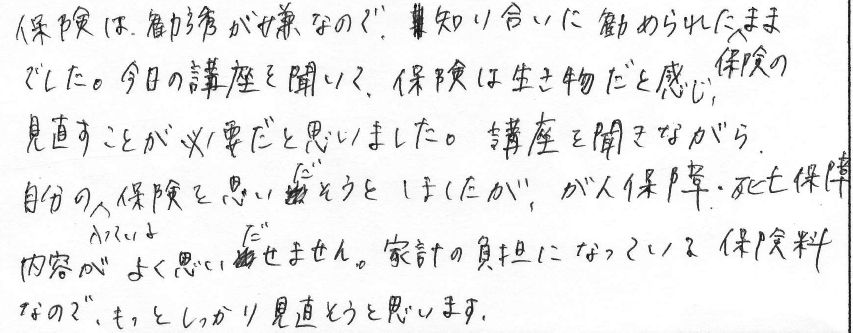 保険は、勧誘が嫌なので、知り合いに勧められたまま
でした。今日の講座を聞いて、保険は生き物だと感じ、保険の
見直すことが必要だと思いました。講座を聞きながら、
自分の入っている保険を思いだそうとしましたが、がん保障・死亡保障
内容がよく思いだせません。家計の負担になっている保険料
なので、もっとしっかり見直そうと思います。